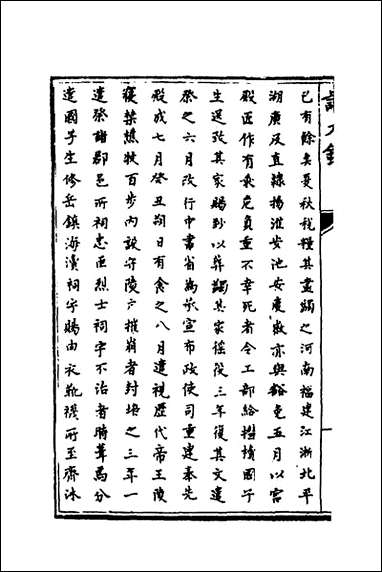 已有餘矣夏秋稅糧其盡蠲之河南福建江浙北平
湖廣及直隸揚淮安池安慶徽亦與豁免五月以宫
殿匠作有乘危負重不幸死者令工部給櫬櫝國子
生送致其家賜鈔以葬蠲其家徭役三年復其文遣
祭之六月改行中書省為承宣布政使司重建奉先
殿成七月癸丑朔日有食之八月遣視歷代帝王陵
寢禁樵牧百步內設守陵戶摧崩者封培之三年一
遣祭諸郡邑所祠忠臣烈士祠宇不治者時葺焉分
遣國子生修岳鎮海瀆祠宇賜由衣靴襪所至齊沐